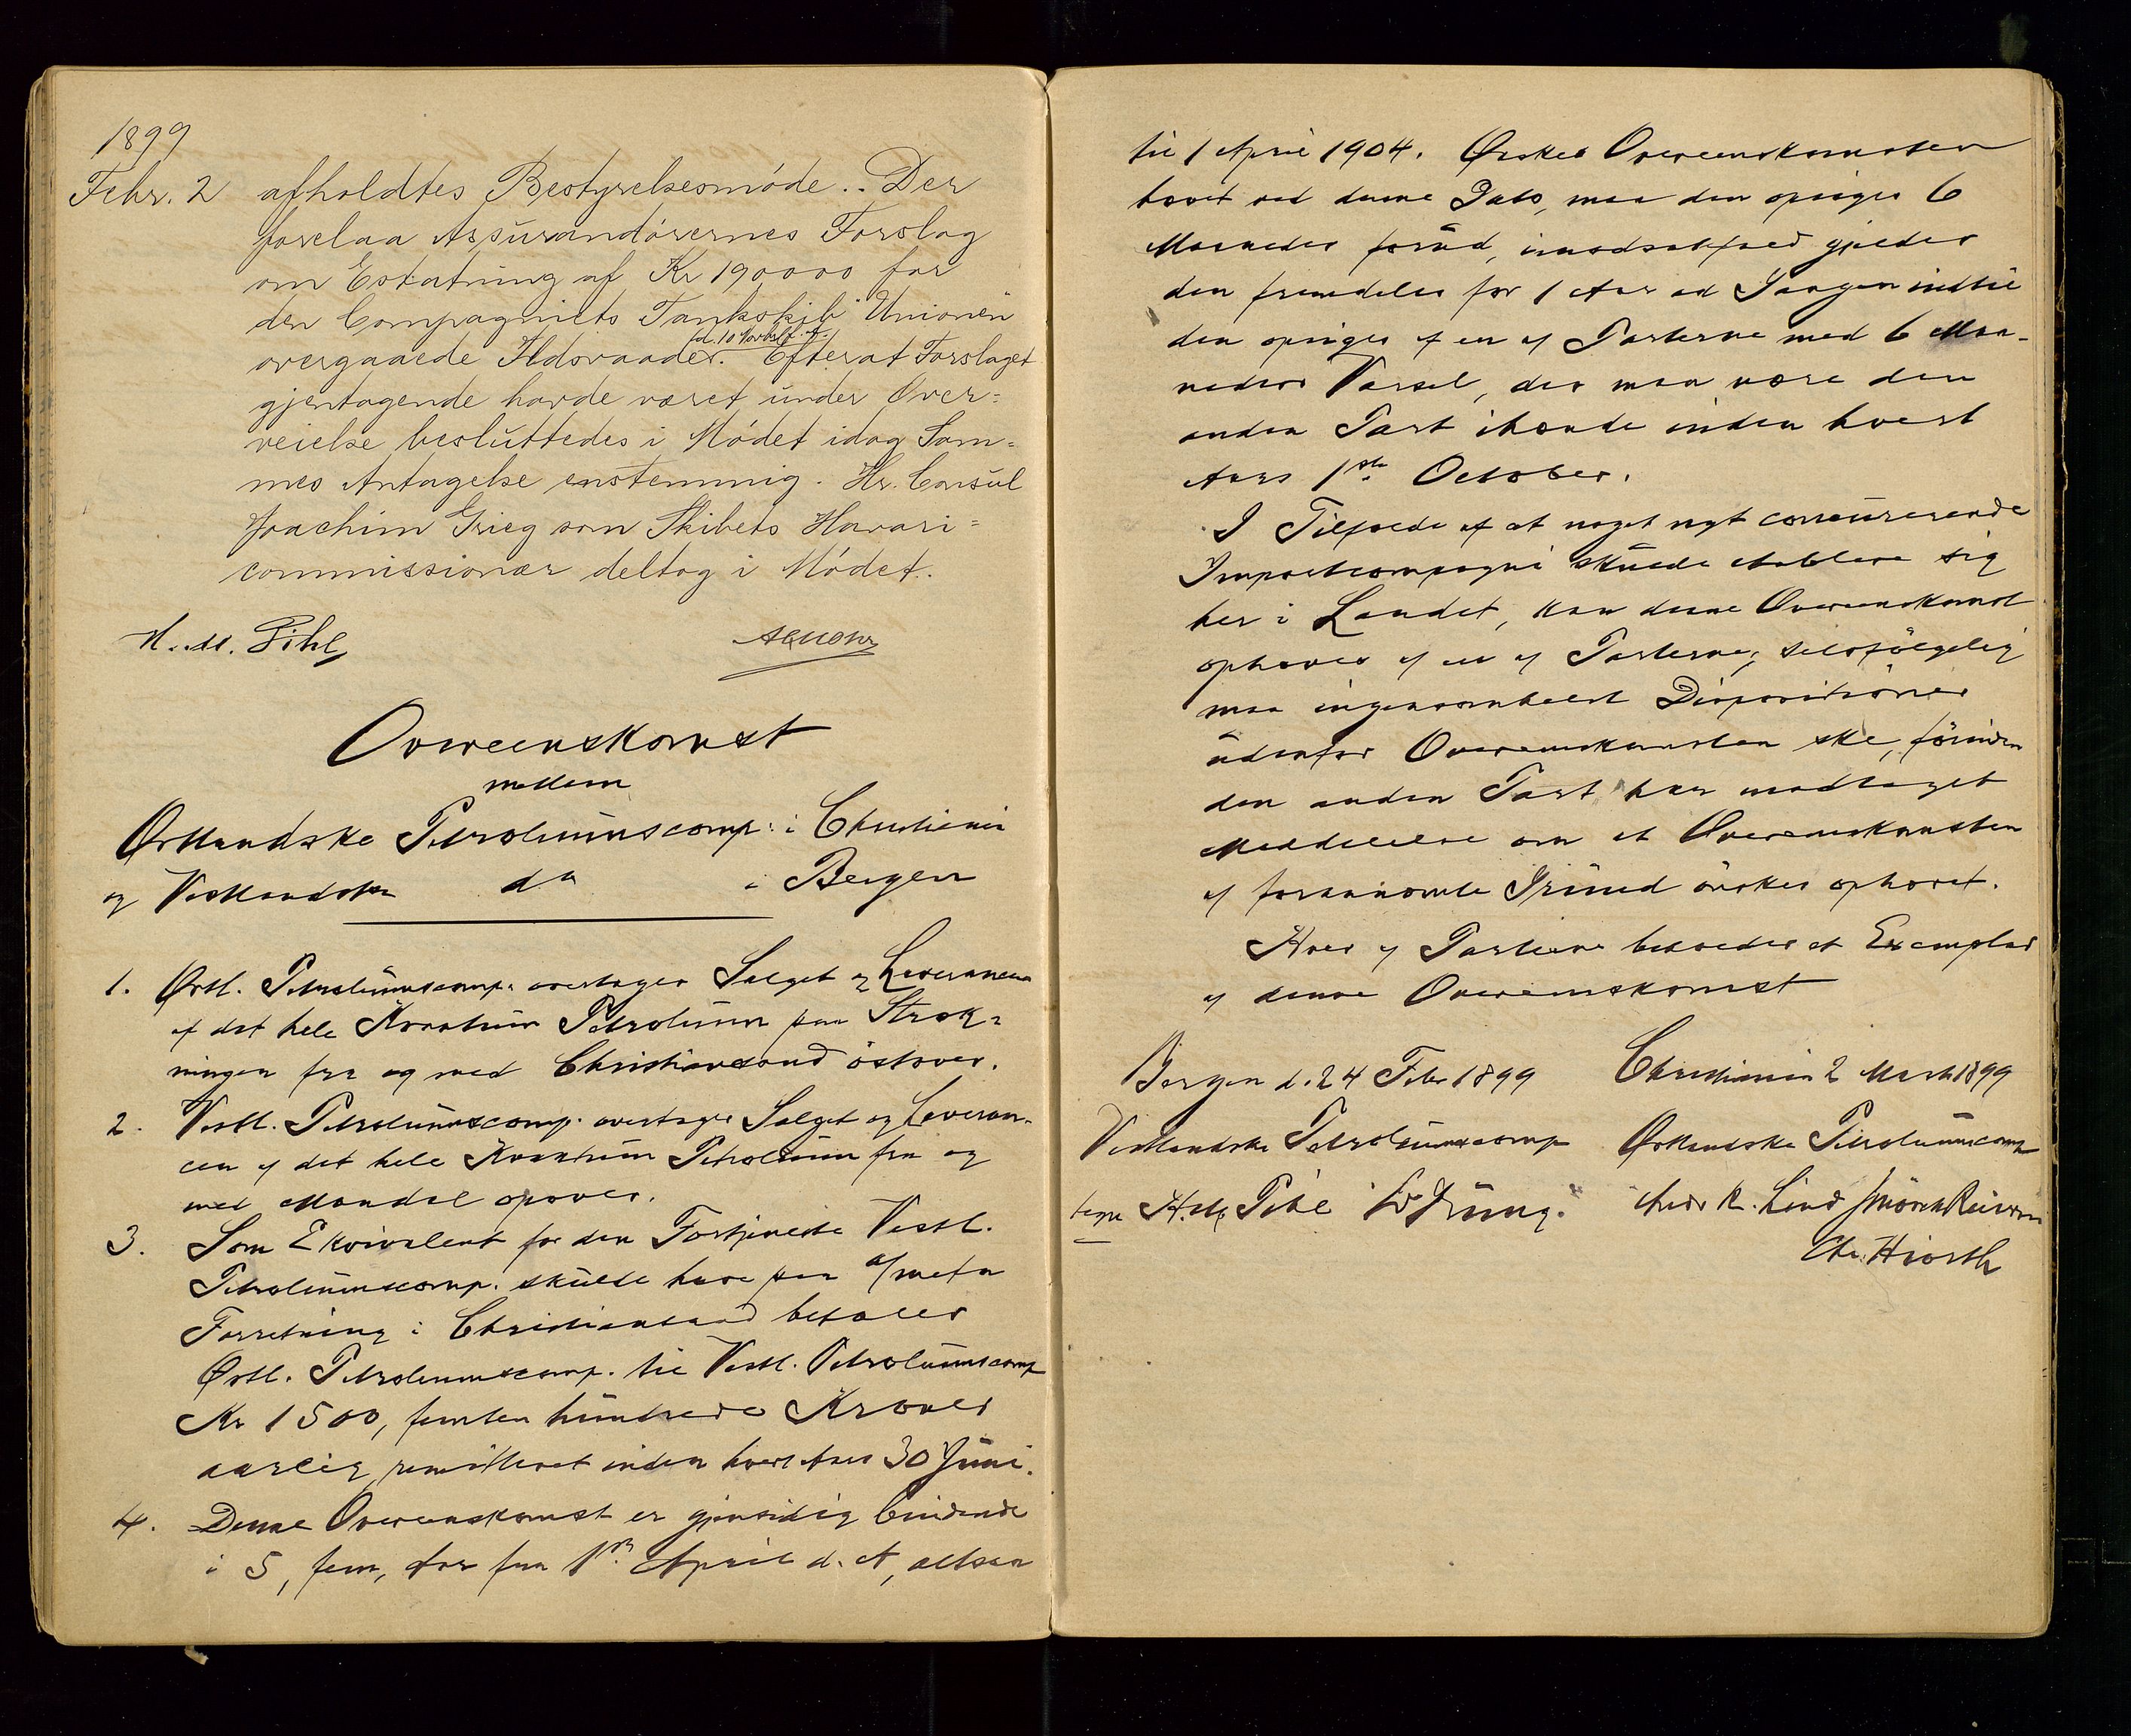 1899
Febr. 2 afholdtes Bestyrelsesmøde.. Der
forelaa Assurandørernes Forslag
om Erstatning af Kr 190000 for
den Compagniets Tankskib "Unionen"
d. 10 Novbr f. A.
overgaaede Ildsvaade. Efterat Forslaget
gjentagende havde været under Over=
veielse besluttedes i Mødet idag Sam=
mes Antagelse enstemmig. Hr. Consul
Joachim Grieg som Skibets Havari=
commissionær deltog i Mødet.
H. M. Pihl
Overeenskomst
mellem
Østlandske Petroleumscomp. i Christiania
og Vestlandske do i Bergen
1. Østl. Petroleumscomp. overtager Salget og Leverancen
af det hele Kvantum Petroleum paa Stræk=
ningen fra og med Christianssand østover.
2. Vestl. Petroleumscomp. overtager Salget og Leveran-
cen af det hele Kvantum Petroleum fra og
med Mandal opover.
3. Som Ekvivalent for den Fortjeneste Vestl.
Petroleumscomp. skulde have paa a/meta
Forretning i Christianssand betaler
Østl. Petroleumscomp. til Vestl. Petroleumscomp
Kr 1500, femten hundrede Kroner
aarlig, remitteret inden hvert Aars 30 Juni.
4. Denne Overeenskomst er gjensidig bindende
i 5, fem, Aar fra 1ste April d. A, altsaa
til 1 April 1904. Ønskes Overeenskomsten
hævet ved denne Dato, maa den opsiges 6
Maaneder forud, imodsatfald gjælder
den fremdeles for 1 Aar ad Gangen indtil
den opsiges af en af Parterne med 6 Maa-
neders Varsel, der maa være den
anden Part ihænde inden hvert
Aars 1ste October.
I Tilfælde af at noget nyt concurrerende
Importcompagni skulde etablere sig
her i Landet, kan denne Overeenskomst
ophæves af en af Parterne; selvfølgelig
maa ingensomhelst Dispositioner
udenfor Overeenskomsten ske, førinden
den anden Part har modtaget
Meddelelse om at Overeenskomsten
af forannævnte Grund ønskes ophævet.
Hver af Parterne beholder et Exemplar
af denne Overeenskomst
Bergen d. 24 Febr 1899 Christiania 2 Marts 1899
Vestlandske Petroleumscomp Østlandske Petroleumscomp
H. M. Pihl Andr R. Lind
Chr. Hiorth